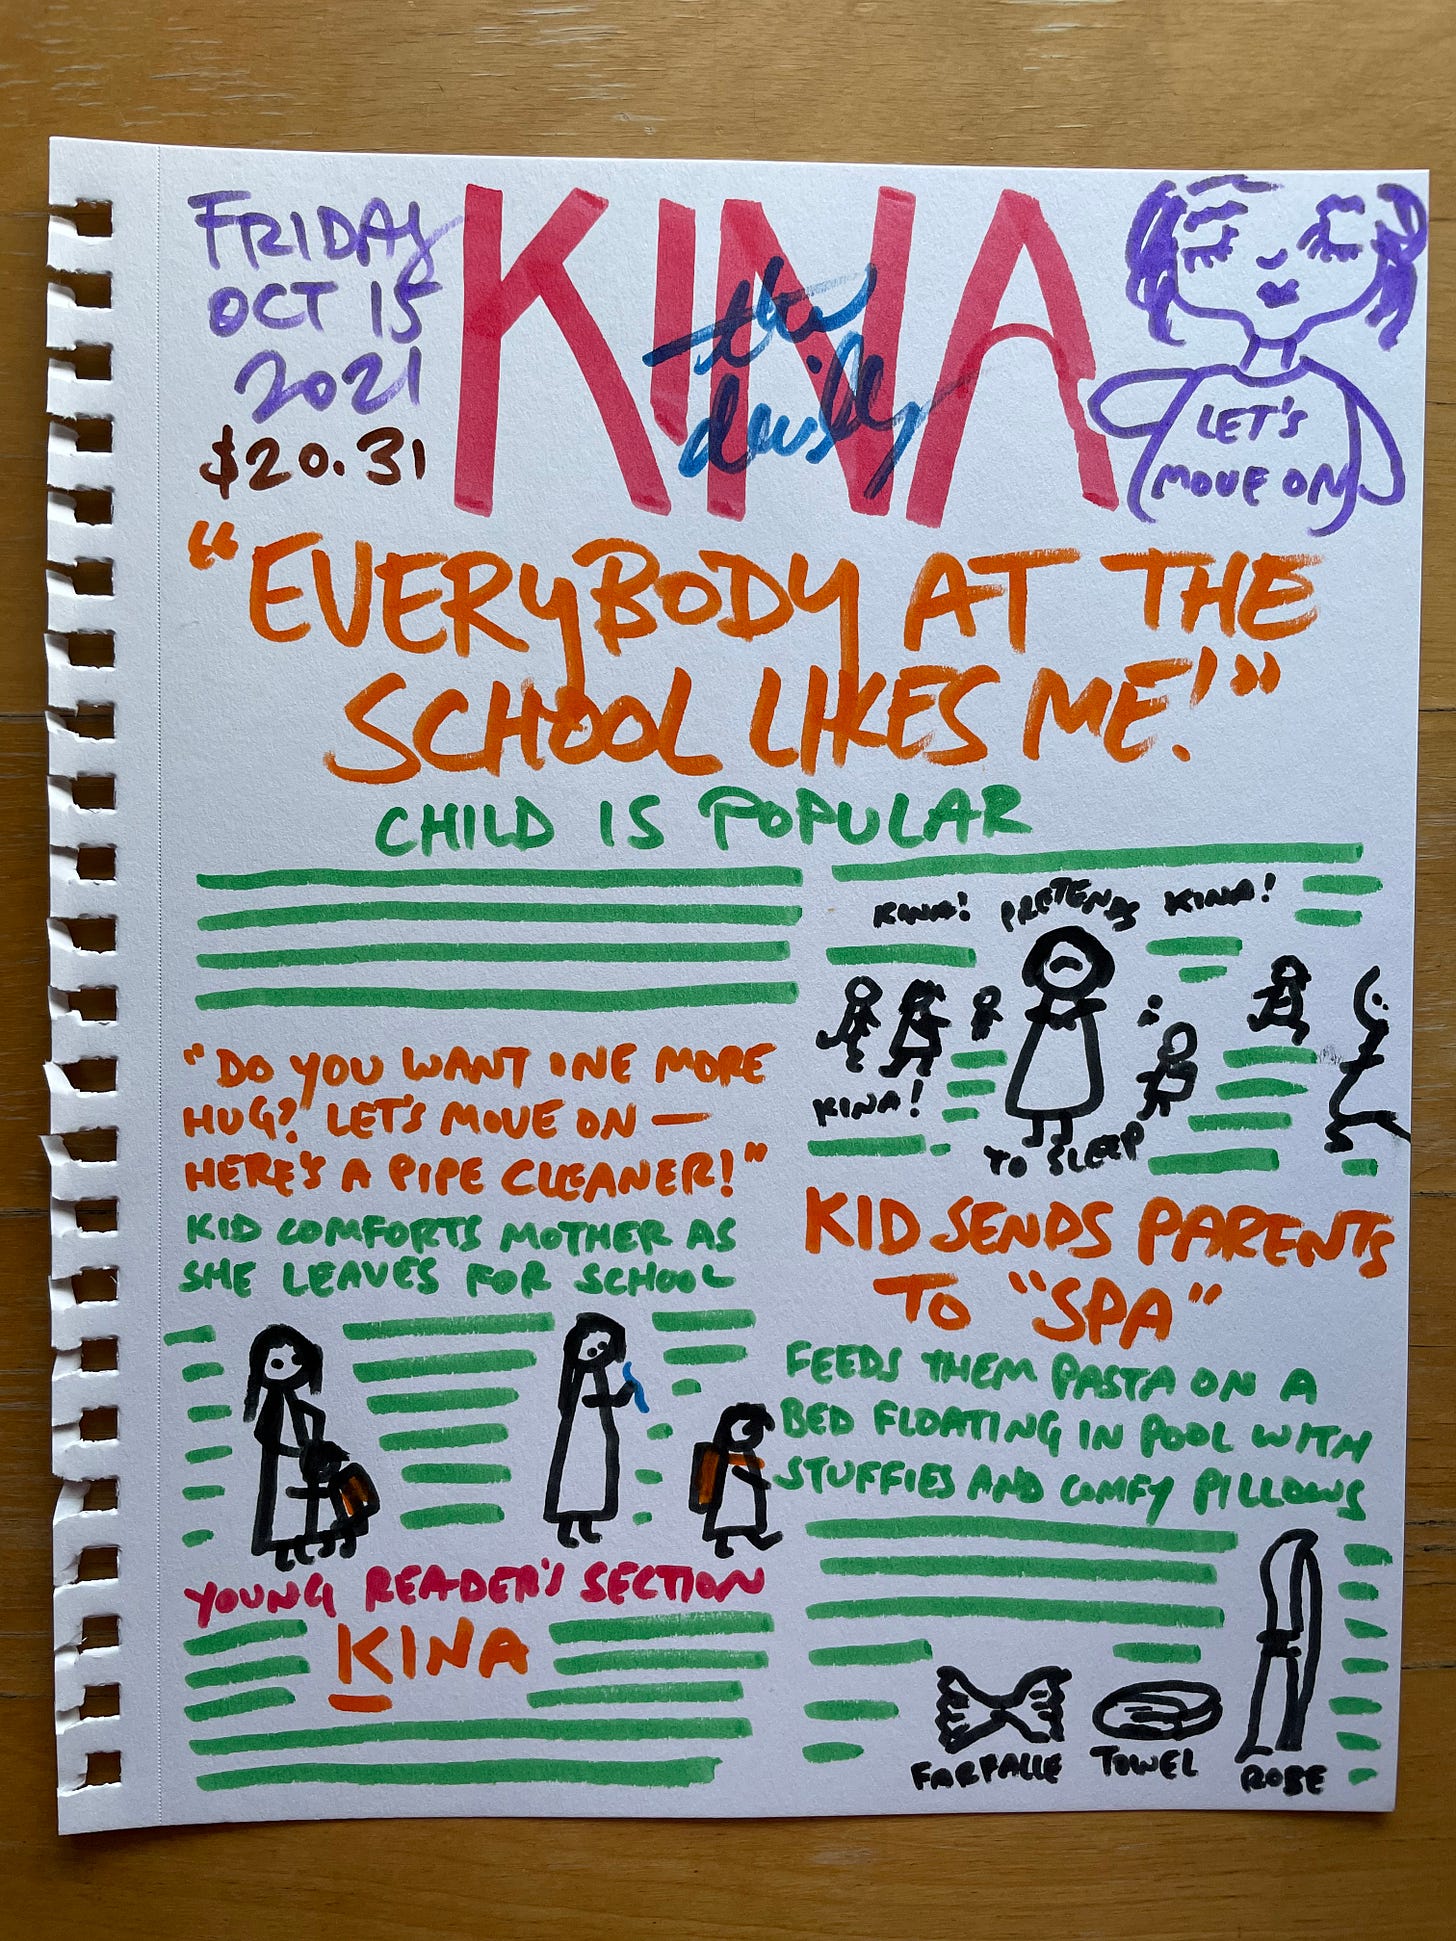 FRIDAY
OCT 15
2021
$20.31
KINA
the
daily
LET'S
MOVE ON
"EVERYBODY AT THE
SCHOOL LIKES ME!"
CHILD IS POPULAR
KINA! PRETENDS KINA!
KINA!
TO SLEEP
"DO YOU WANT ONE MORE
HUG? LET'S MOVE ON —
HERE'S A PIPE CLEANER!"
KID COMFORTS MOTHER AS
SHE LEAVES FOR SCHOOL
YOUNG READER'S SECTION
KINA
KID SENDS PARENTS
TO "SPA"
FEEDS THEM PASTA ON A
BED FLOATING IN POOL WITH
STUFFIES AND COMFY PILLOWS
FARFALLE TOWEL ROBE